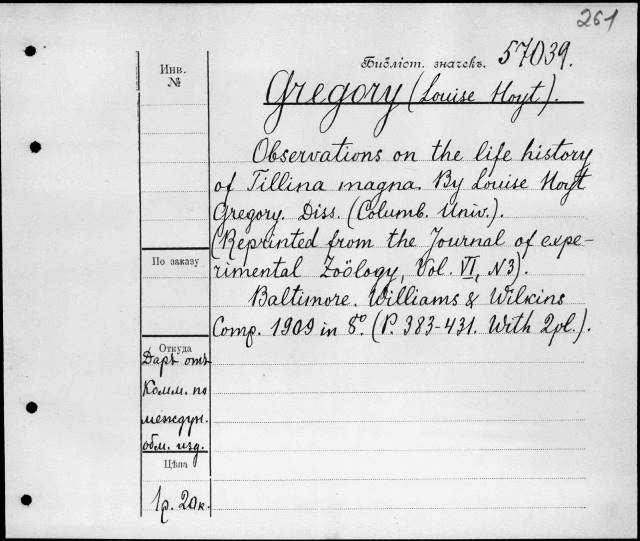 261
Библіот. значекъ. 57039.
Инв.
№
Gregory (Louise Hoyt).
Observations on the life history
of Tillina magna. By Louise Hoyt
Gregory. Diss. (Columb. Univ.).
(Reprinted from the Journal of expe-
rimental Zoölogy, Vol. VI, N3).
Baltimore. Williams & Wilkins
Comp. 1909 in 8°. (P. 383-431. With 2pl.).
По заказу
Откуда
Даръ отъ
Комм. по
междун.
обм. изд.
Цѣна
1р. 20к.